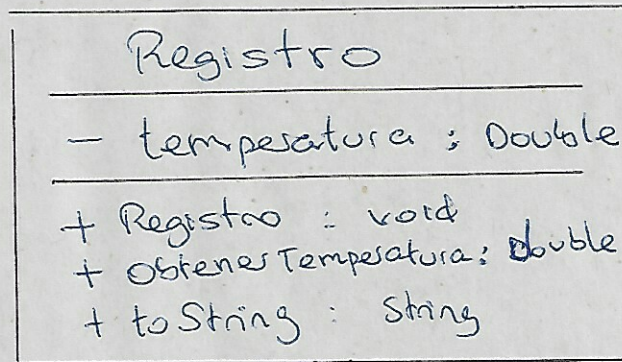 Registro
- temperatura : Double
+ Registro : void
+ ObtenerTemperatura : double
+ toString : String